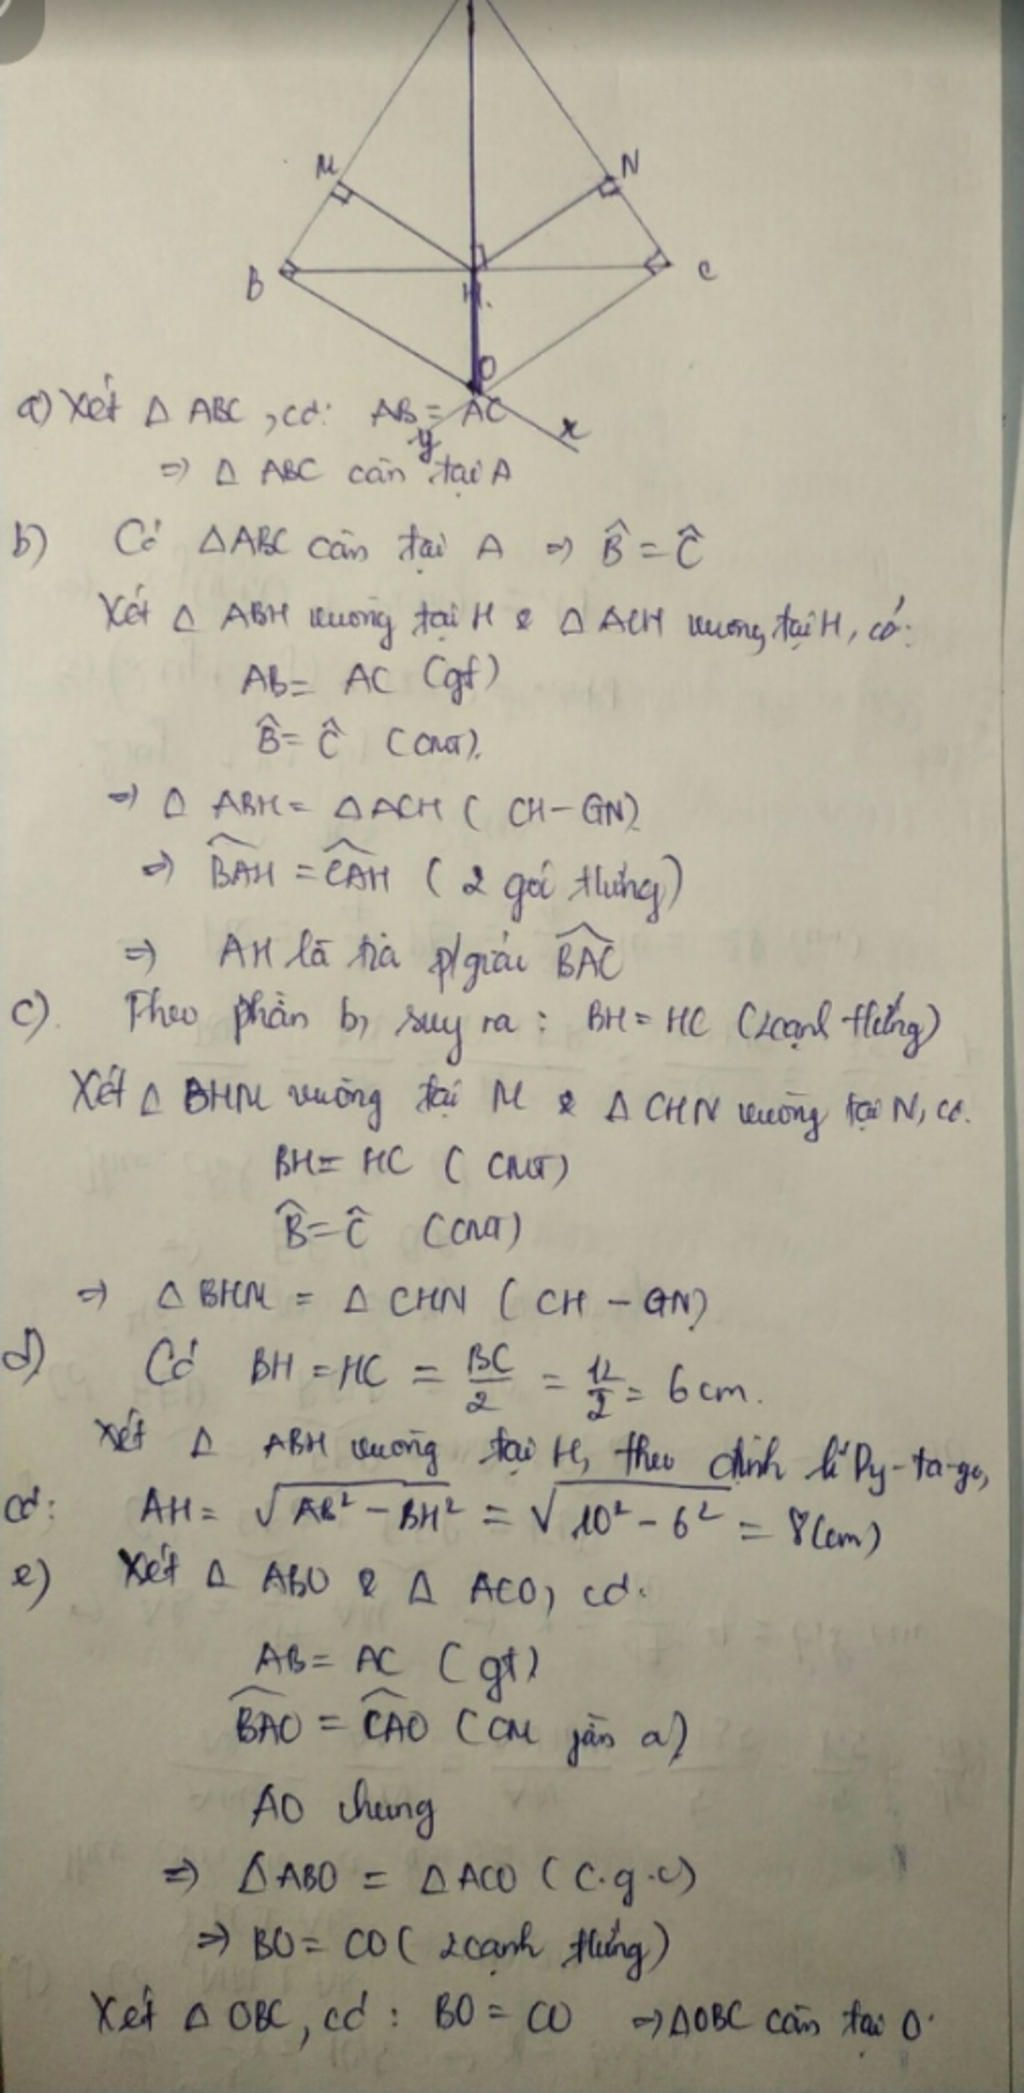 M
N
B
C
H
O
y
x
a) Xét Δ ABC, có: AB = AC
⇒ Δ ABC cân tại A
b) Có ΔABC cân tại A ⇒ B̂ = Ĉ
Xét Δ ABH vuông tại H & Δ ACH vuông tại H, có:
AB = AC (gt)
B̂ = Ĉ (cmt).
⇒ Δ ABH = Δ ACH ( CH - GN)
⇒ \widehat{BAH} = \widehat{CAH} ( 2 góc t/ứng)
⇒ AH là tia p/giác \widehat{BAC}
c). Theo phần b, suy ra : BH = HC (2cạnh t/ứng)
Xét Δ BHM vuông tại M & Δ CHN vuông tại N, có.
BH = HC ( CMT)
B̂ = Ĉ (cmt)
⇒ Δ BHM = Δ CHN ( CH - GN)
d) Có BH = HC = \frac{BC}{2} = \frac{12}{2} = 6cm.
Xét Δ ABH vuông tại H, theo định lí Py-ta-go,
có: AH = \sqrt{AB² - BH²} = \sqrt{10² - 6²} = 8(cm)
e) Xét Δ ABO & Δ ACO, có.
AB = AC (gt)
\widehat{BAO} = \widehat{CAO} (CM a)
AO chung
⇒ ΔABO = ΔACO (c.g.c)
⇒ BO = CO ( 2cạnh t/ứng)
Xét Δ OBC, có : BO = CO ⇒ ΔOBC cân tại O.